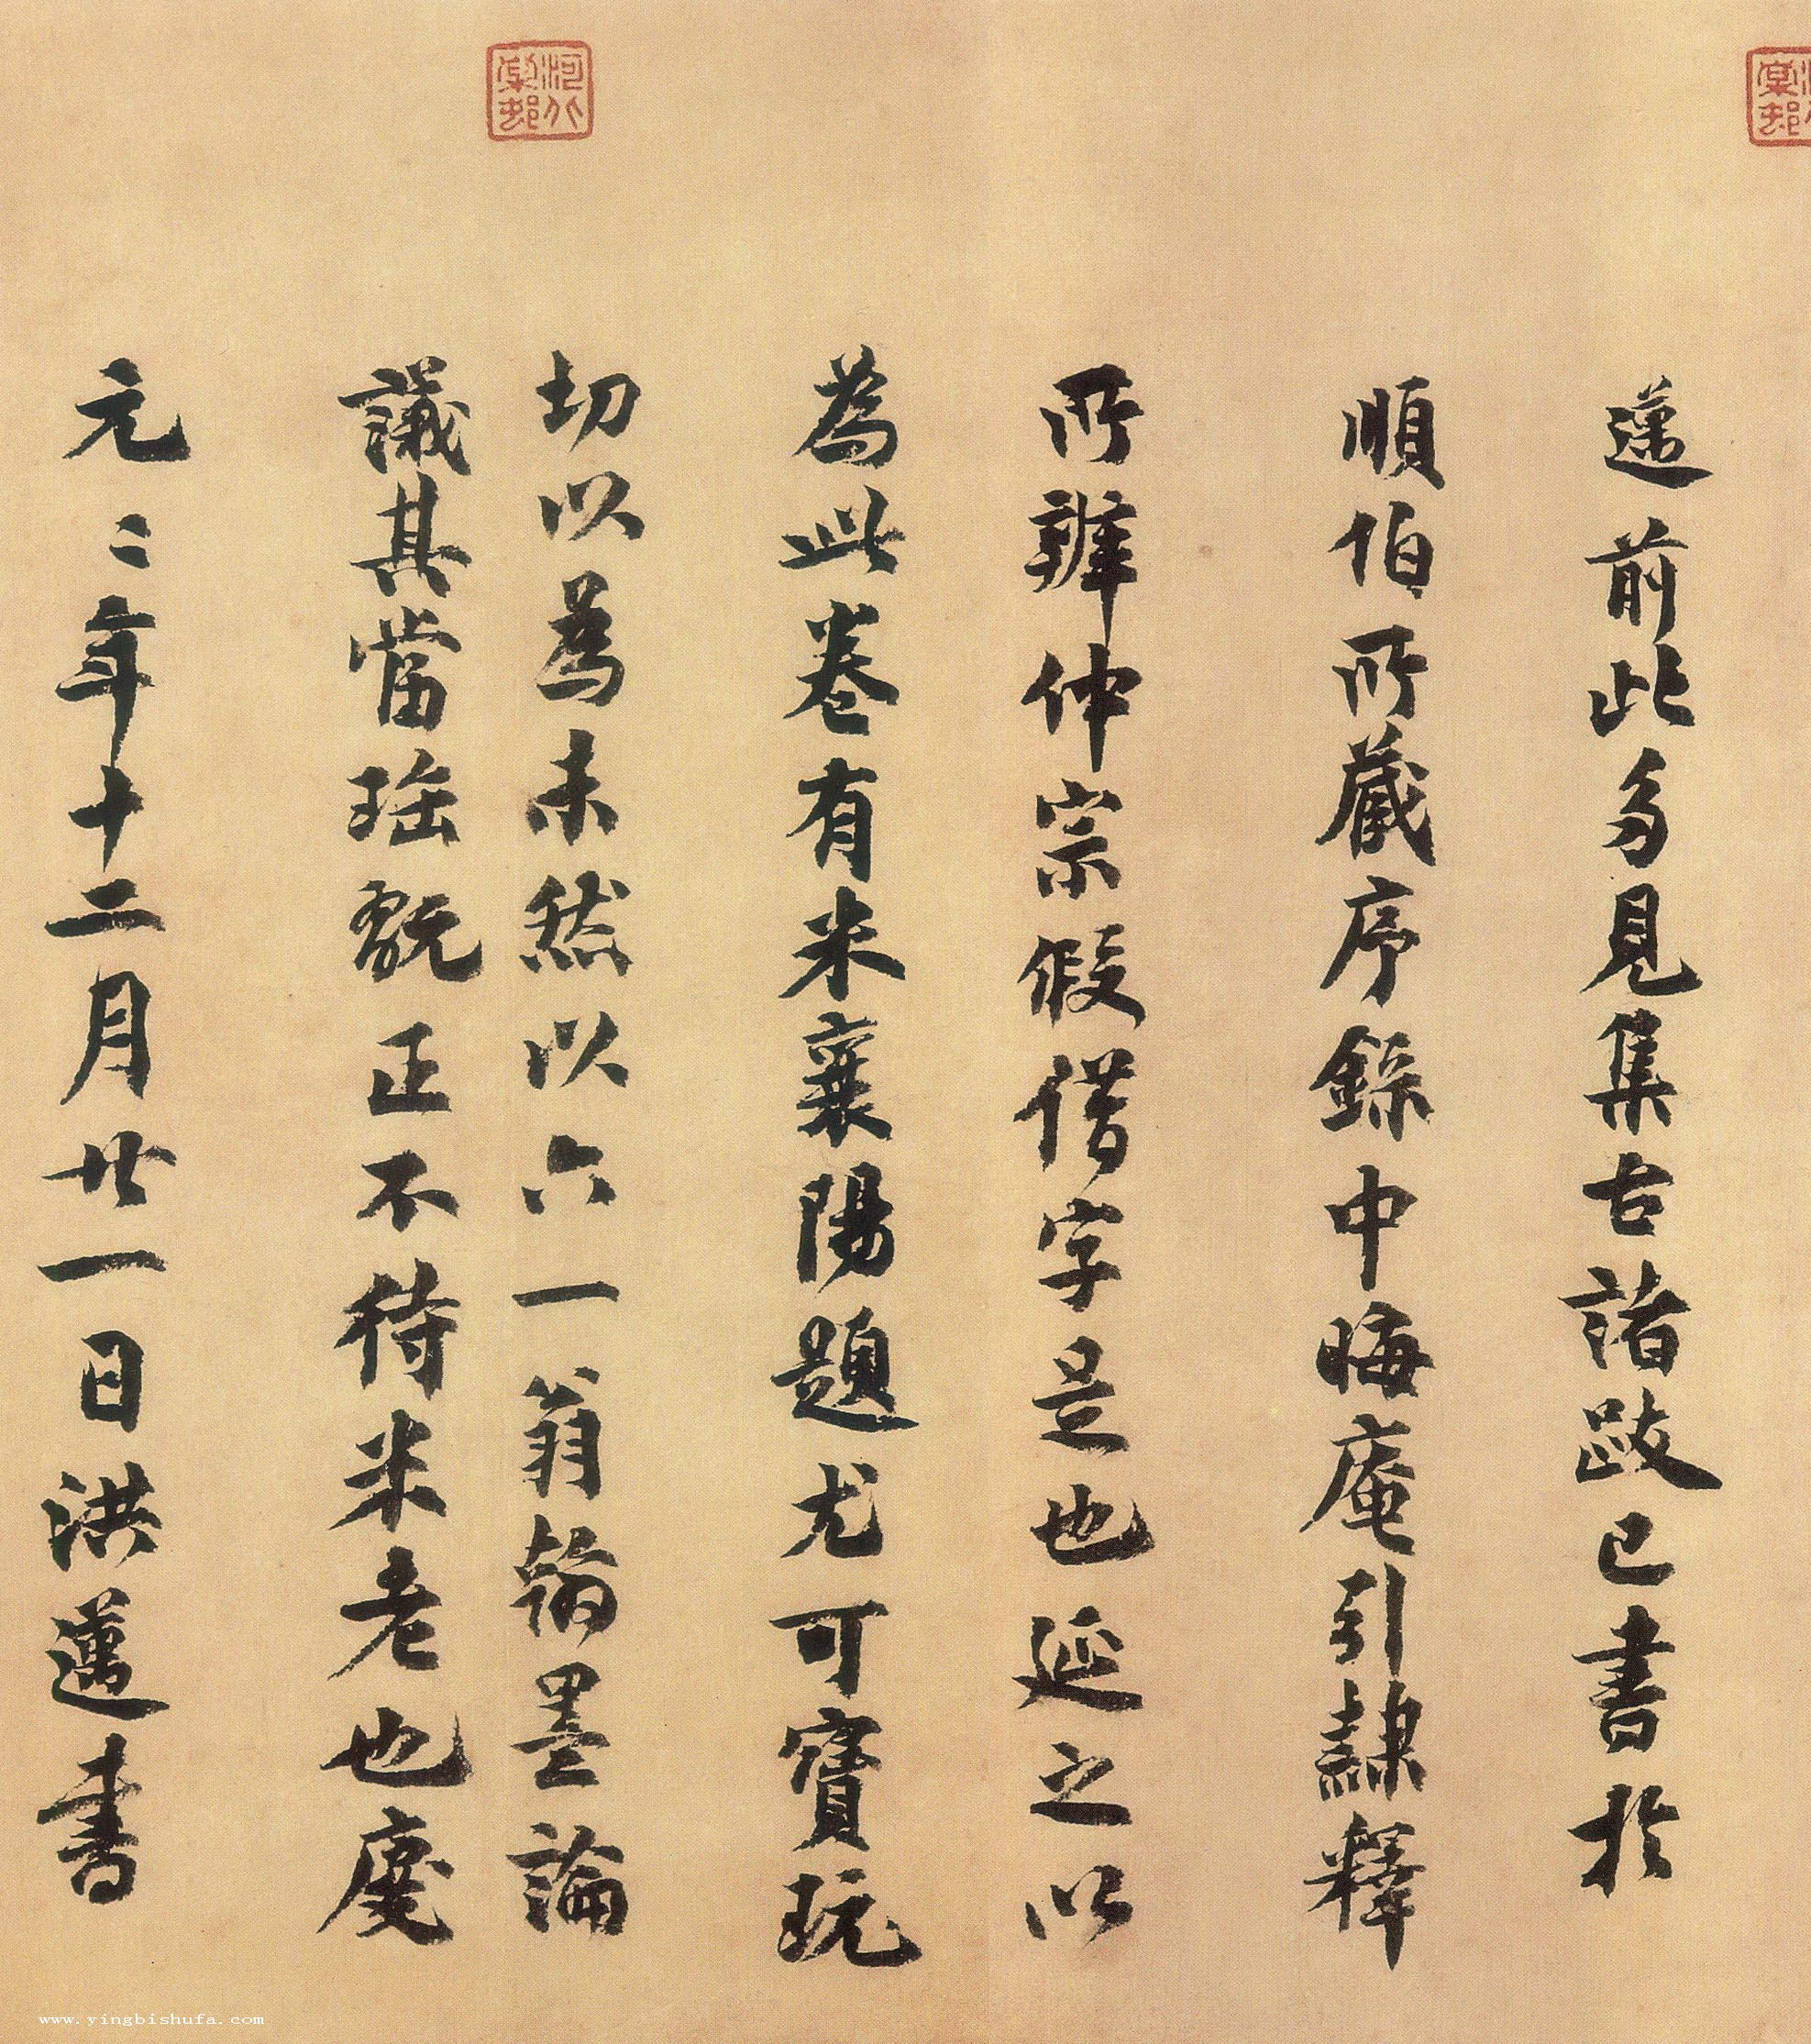 邁前此多見集古諸跋已書於
順伯所藏序錄中晦庵引隸釋
所辨仲宗假借字是也延之以
為此卷有米襄陽題尤可寶玩
切以為未然以六一翁翰墨論
議其當瑶翫正不待米老也慶
元二年十二月廿一日洪邁書
www.yingbishufa.com